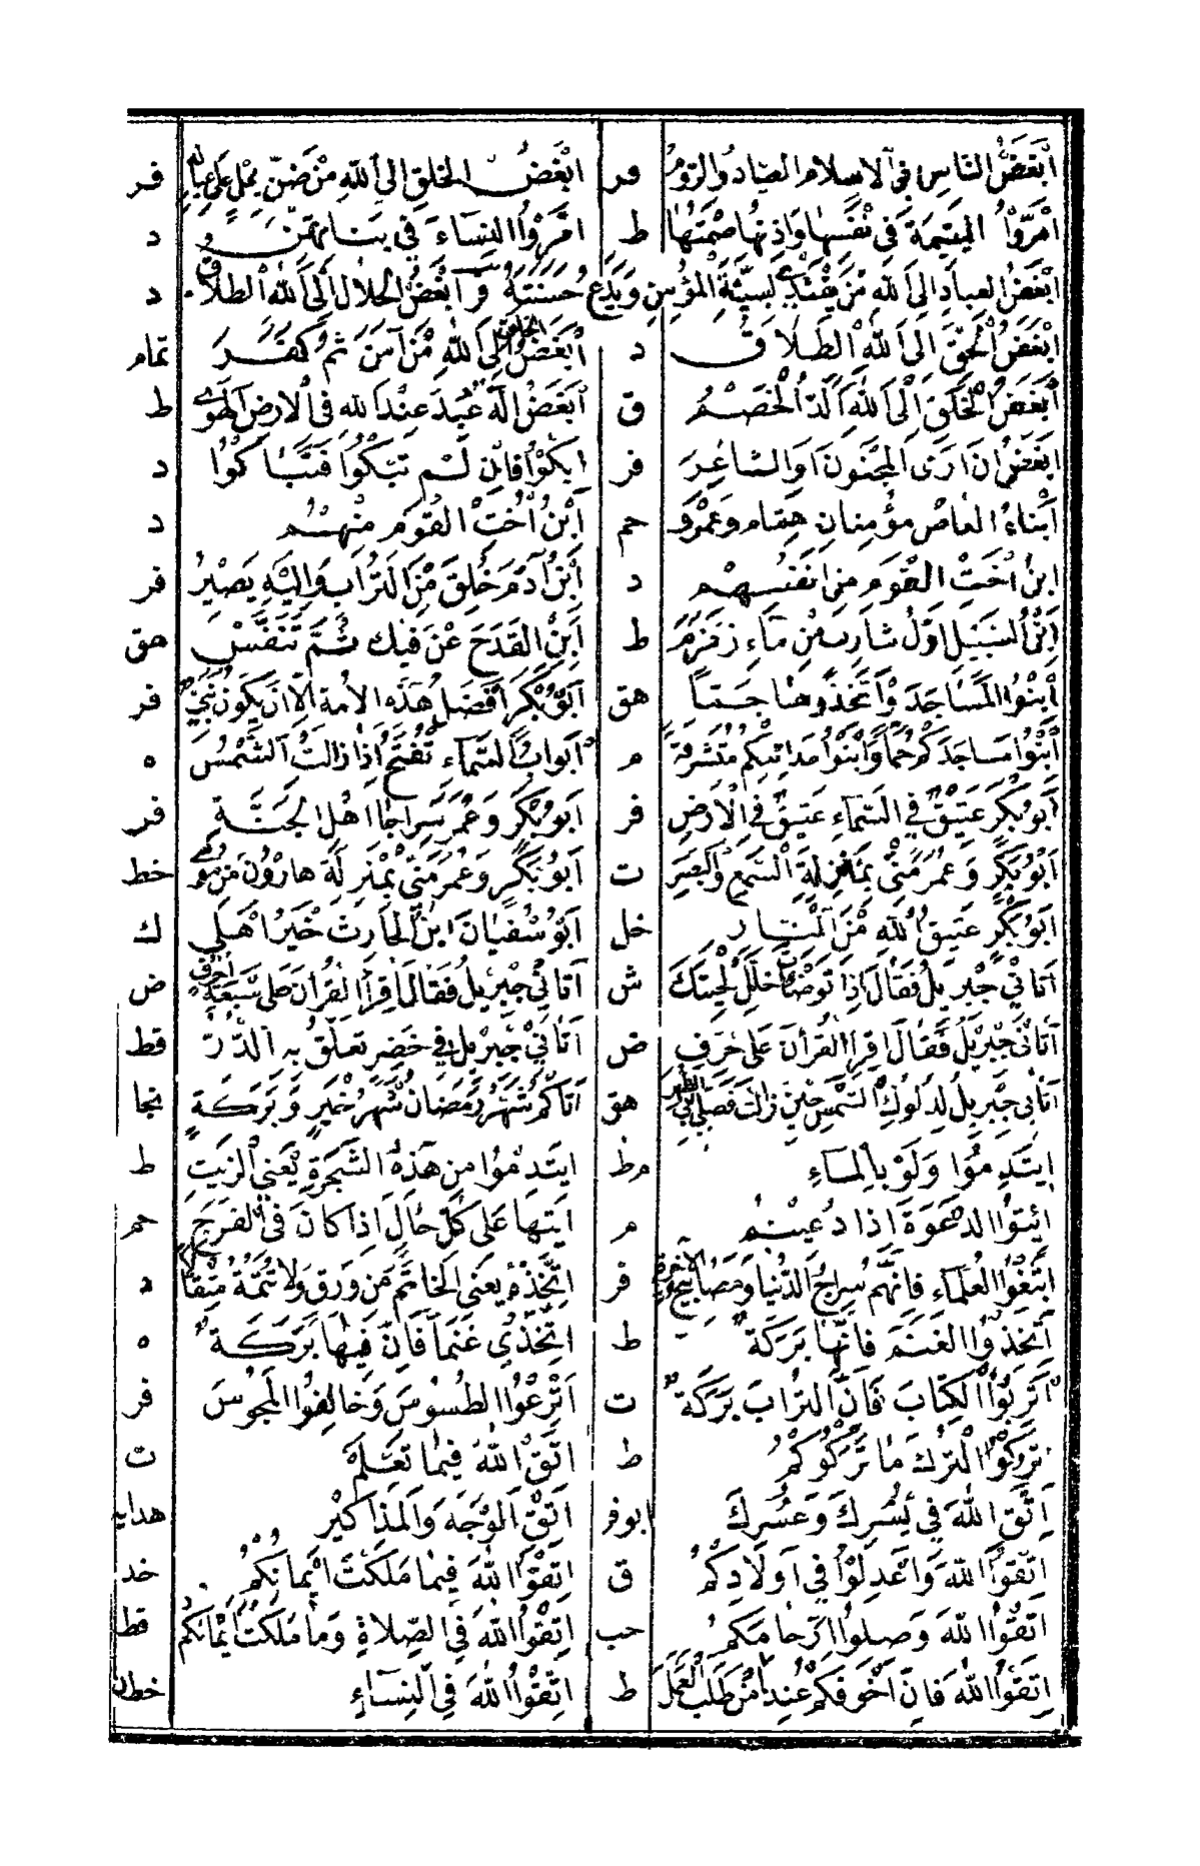 ابغض الناس في الاسلام الصاد والروم فر ابغض الخلق الى الله من ضن على عياله فر
امروا اليتيمة في نفسها واذنها صمتها ط امروا النساء في بناتهن د
ابغض العباد الى الله من يقتدي بسيئة المؤمن ويدع حسنته فر ابغض الحلال الى الله الطلاق د
ابغض الحق الى الله الطلاق د ابغض الخلق الى الله من آمن ثم كفر تمام
ابغض الخلق الى الله الد الخصم ق ابغض اله عبد عند الله في الارض الهوى ط
ابغض ان ارى المجنون او الشاعر فر ابكوا فان لم تبكوا فتباكوا د
ابناء العاص مؤمنان هشام وعمرو حم ابن اخت القوم منهم د
ابن اخت القوم من انفسهم د ابن آدم خلق من التراب واليه يصير فر
ابن السبيل اول شارب من ماء زمزم ط ابن القدح عن فيك ثم تنفس هق
ابنوا المساجد واتخذوها جما هق ابو بكر افضل هذه الامة الا ان يكون نبي فر
ابنوا مساجدكم جما وابنوا مدائنكم مشرفة م ابواب السماء تفتح اذا زالت الشمس ه
ابو بكر عتيق في السماء عتيق في الارض فر ابو بكر وعمر سراجا اهل الجنة فر
ابو بكر وعمر مني بمنزلة السمع والبصر ت ابو بكر وعمر مني بمنزلة هارون من موسى خط
ابو بكر عتيق الله من النار خل ابو سفيان ابن الحارث خير اهلي ك
اتاني جبريل فقال اذا توضأت خلل لحيتك ش اتاني جبريل فقال اقرأ القرآن على سبعة احرف ض
اتاني جبريل فقال اقرأ القرآن على حرف ض اتاني جبريل في خضر تعلق به الدر قط
اتاني جبريل لدلوك الشمس حين زالت فصلى بي الظهر هق اتاكم شهر رمضان شهر خير وبركة نجا
ايتدموا ولو بالماء مط ايتدموا من هذه الشجرة يعني الزيت ط
ائتوا الدعوة اذا دعيتم م ايتها على كل حال اذا كان في الفرج حم
اتبعوا العلماء فانهم سراج الدنيا ومصابيح الآخرة فر اتخذه يعني الخاتم من ورق ولا تتمه مثقالا د
اتخذوا الغنم فانها بركة ط اتخذي غنما فان فيها بركة ه
اتربوا الكتاب فان التراب بركة ت اترعوا الطسوس وخالفوا المجوس فر
اتركوا الترك ما تركوكم ط اتق الله فيما تعلم ت
اتق الله في يسرك وعسرك ابوفر اتق الوجه والمذاكير هدايه
اتقوا الله واعدلوا في اولادكم ق اتقوا الله فيما ملكت ايمانكم خد
اتقوا الله وصلوا ارحامكم حب اتقوا الله في الصلاة وما ملكت ايمانكم قط
اتقوا الله فان اخوفكم عندا من طلب العمل ط اتقوا الله في النساء خطان